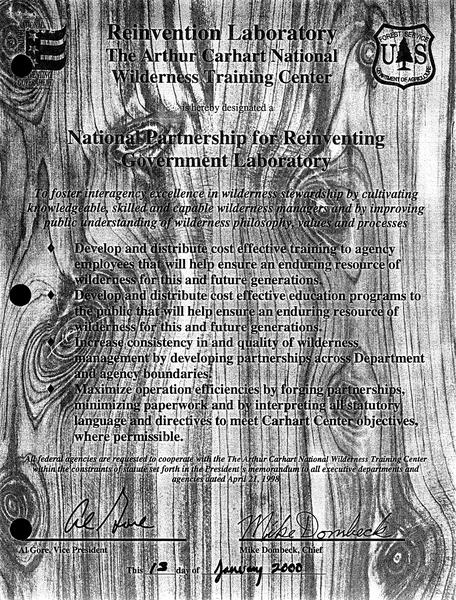 Reinvention Laboratory
The Arthur Carhart National
Wilderness Training Center
is hereby designated a
National Partnership for Reinventing
Government Laboratory
To foster interagency excellence in wilderness stewardship by cultivating
knowledgeable, skilled and capable wilderness managers and by improving
public understanding of wilderness philosophy, values and processes
FOREST SERVICE
U S
DEPARTMENT OF AGRICULTURE
♦ Develop and distribute cost effective training to agency
employees that will help ensure an enduring resource of
wilderness for this and future generations.
♦ Develop and distribute cost effective education programs to
the public that will help ensure an enduring resource of
wilderness for this and future generations.
♦ Increase consistency in and quality of wilderness
management by developing partnerships across Department
and agency boundaries.
♦ Maximize operation efficiencies by forging partnerships,
minimizing paperwork and by interpreting all statutory
language and directives to meet Carhart Center objectives,
where permissible.
All federal agencies are requested to cooperate with the The Arthur Carhart National Wilderness Training Center
within the constraints of statute set forth in the President's memorandum to all executive departments and
agencies dated April 21, 1998
Al Gore
Mike Dombeck
Al Gore, Vice President
Mike Dombeck, Chief
This 13 day of January 2000